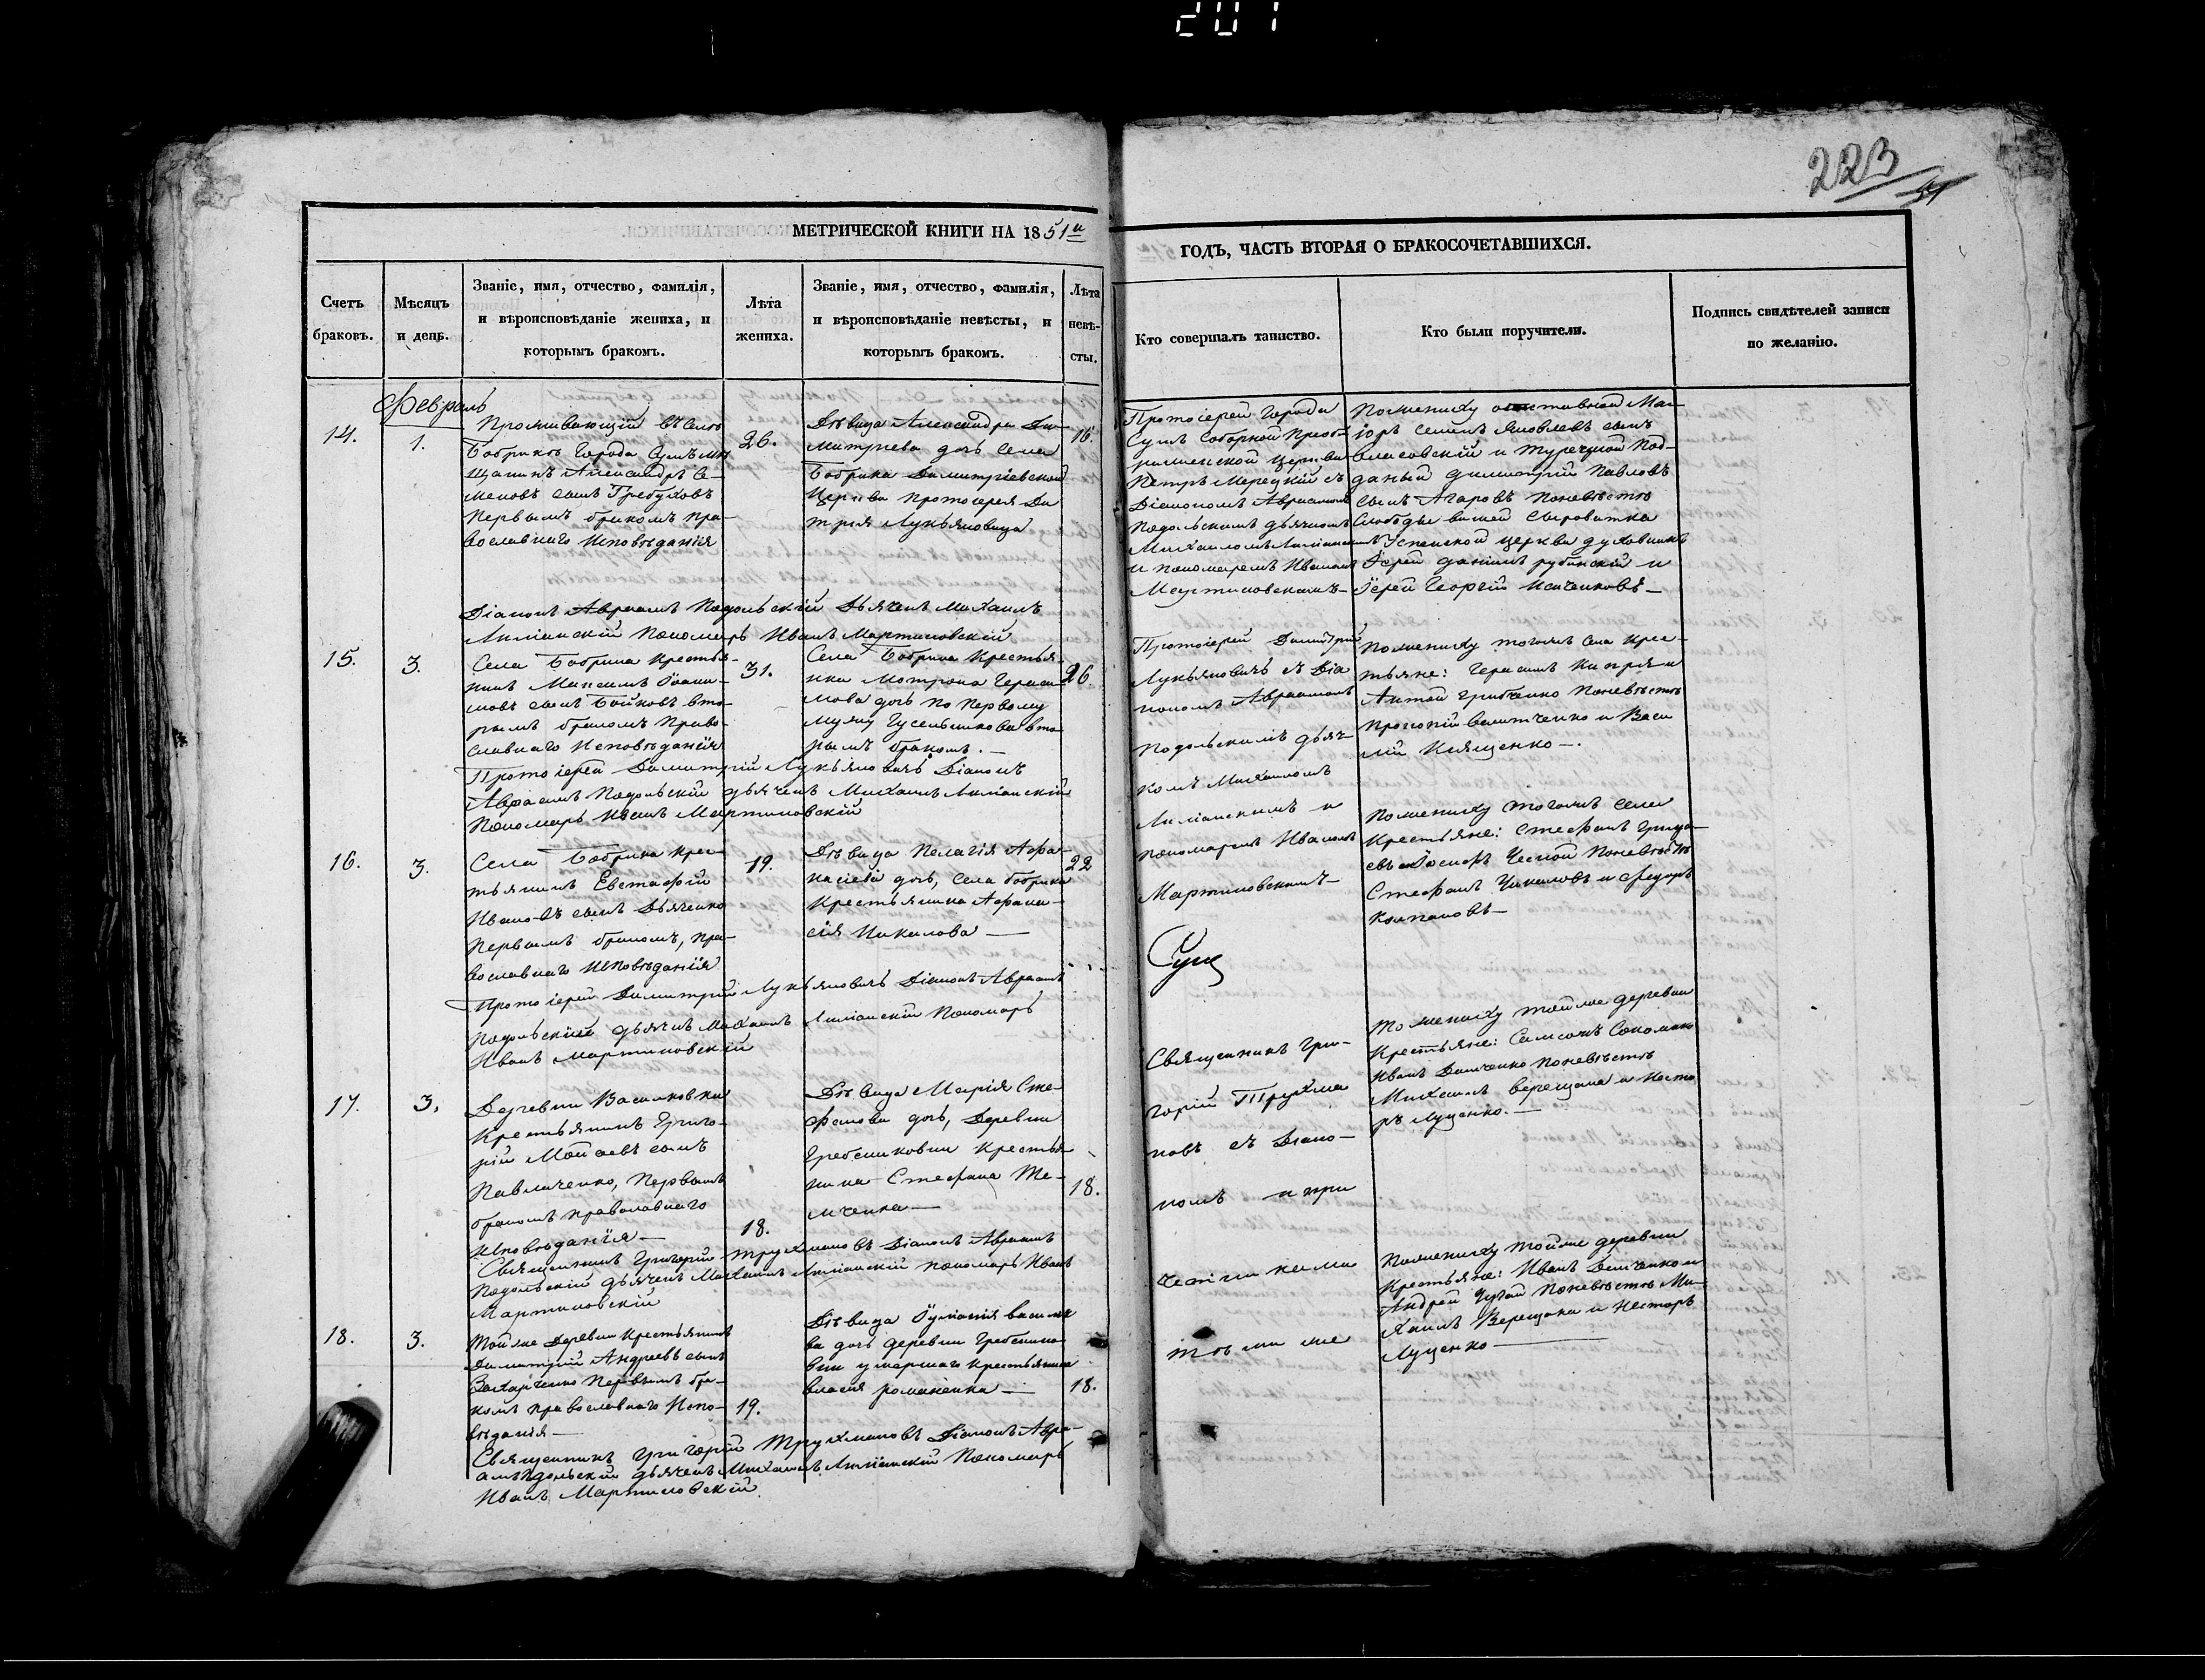 201
223
МЕТРИЧЕСКОЙ КНИГИ НА 1851й
ГОДЪ, ЧАСТЬ ВТОРАЯ О БРАКОСОЧЕТАВШИХСЯ.
Счетъ
браковъ.
Мѣсяцъ
и день.
Званіе, имя, отчество, фамилія,
и вѣроисповѣданіе жениха, и
которымъ бракомъ.
Лѣта
жениха.
Званіе, имя, отчество, фамилія,
и вѣроисповѣданіе невѣсты, и
которымъ бракомъ.
Лѣта
невѣ-
сты.
Кто совершалъ таинство.
Кто были поручители.
Подпись свидѣтелей записи
по желанію.
Февраль
14.
1.
Проживающій въ селѣ
Бобрикѣ Города Сумъ мѣ
щанинъ Александръ Се-
меновъ сынъ Требуховъ
первымъ бракомъ пра-
вославнаго исповѣданія
26.
Дѣвица Александра Ди-
митриева дочь села
Бобрика Димитріевской
Церкви протоіерея Ди
трія Лукьяновича
16.
Протоіерей города
Сумъ Соборной Преоб-
раженской церкви
Петръ Мерецкій съ
Діакономъ Авраамомъ
Подольскимъ дьячкомъ
Михаиломъ
и пономаремъ Иваномъ
Мартиновскимъ-
По жениху отставной Ма-
іоръ Семенъ Яковлевъ сынъ
Власовскій и турецкой под-
даный Димитрій Павловъ
сынъ Агаровъ по невѣстѣ
Слободы вышей Сыроватка
Успенской церкви духовникъ
Іерей Даніилъ рубинскій и
Іерей Георгій
Діаконъ Авраамъ Подольскій Дьячекъ Михаилъ
Пономарь Иванъ Мартиновскій
15.
3.
Села Бобрика крестья-
нинъ Максимъ Іоаки-
мовъ сынъ Бойковъ вто-
рымъ бракомъ право-
славнаго исповѣданія
31.
Села Бобрика крестья-
нка Мотрона Гераси-
мова дочь по первому
мужу Гусельникова вто-
рымъ бракомъ.-
26.
Протоіерей Димитрій
Лукьяновичъ съ Діа
кономъ Авраамомъ
Подольскимъ дьяч-
комъ Михаиломъ
и
пономаремъ Иваномъ
Мартиновскимъ-
По жениху тогожъ села крес-
тьяне: Герасимъ и
Антон Грибченко по невѣстѣ
Прокопій и Васи
лій
Протоіерей Димитрій Лукьяновичъ Діаконъ
Авраамъ Подольскій дьячекъ Михаилъ
Пономарь Иванъ Мартиновскій
16.
3.
Села Бобрика крес-
тьянинъ Евстафій
Ивановъ сынъ Дьяченко
первымъ бракомъ, пра-
вославнаго исповѣданія
19.
Дѣвица Пелагія Афа-
насіева дочь, села бобрика
крестьянина Афана-
сія Чикалова-
22
По жениху тогожъ села
крестьяне: Стефанъ
и Іосифъ по невѣстѣ
Стефанъ Чикаловъ и Федоръ
Колпаковъ-
Протоіерей Димитрій Лукьяновичъ Діаконъ Авраамъ
Подольскій дьячекъ Михаилъ Пономарь
Иванъ Мартиновскій
17.
3.
Деревни Василковки
крестьянинъ Григо-
рій сынъ
Павличенко, первымъ
бракомъ православнаго
исповѣданія-
18.
Дѣвица Марія Сте-
фанова дочь, деревни
Гребениковки крестья
нина Стефана Те-
мченка-
18.
Священникъ Гри-
горій Трухма
новъ съ Діако-
номъ и при
четниками
тѣми же
По жениху тойже деревни
крестьяне: Самсонъ
Иванъ Демченко по невѣстѣ
Михаилъ Верещака и Несто
ръ Луценко.-
Священникъ Григорій Трухмановъ Діаконъ Авраамъ
Подольскій дьячекъ Михаилъ пономарь Иванъ
Мартиновскій
18.
3.
Тойже деревни крестьянинъ
Димитрій Андреевъ сынъ
Захарченко первымъ бра-
комъ православнаго испо-
вѣданія-
19.
Дѣвица Іуліанія василье
ва дочь деревни Гребенико
вки умершаго крестьянина
василія романенка-
18.
По жениху тойже деревни
крестьяне: Иванъ Демченко и
Андрей по невѣстѣ Ми-
хаилъ Верещака и Несторъ
Луценко-
Священникъ Григорій Трухмановъ Діаконъ Авра-
амъ Подольскій дьячекъ Михаилъ Пономарь
Иванъ Мартиновскій